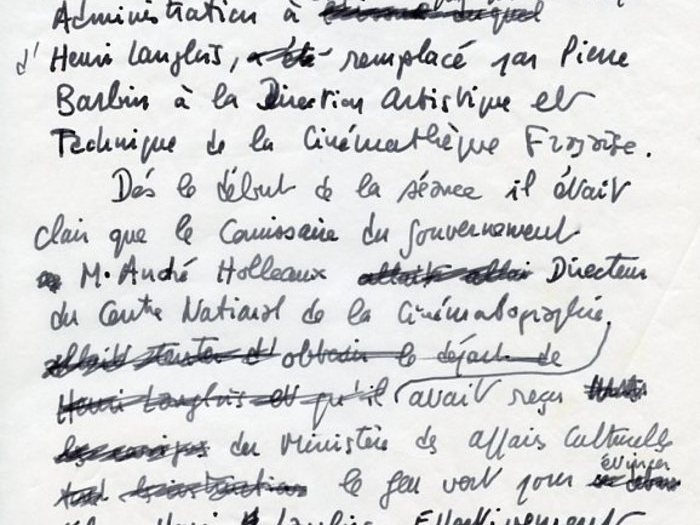 Administration à
d' Henri Langlois, a été remplacé par Pierre
Barbin à la Direction Artistique et
Technique de la Cinémathèque Frsaise.
Dés le début de la séance il était
clair que le Comissaire du gouvernement
M. André Holleaux allait allai Directeur
du Centre National de la Cinématographie,
allait tenter d' obtenir le départ de
Henri Langlois et qu'il avait reçu
les consignes du Ministère des affais Culturelle
les instructions le feu vert pour évinper
Henri Langlois Effectivement